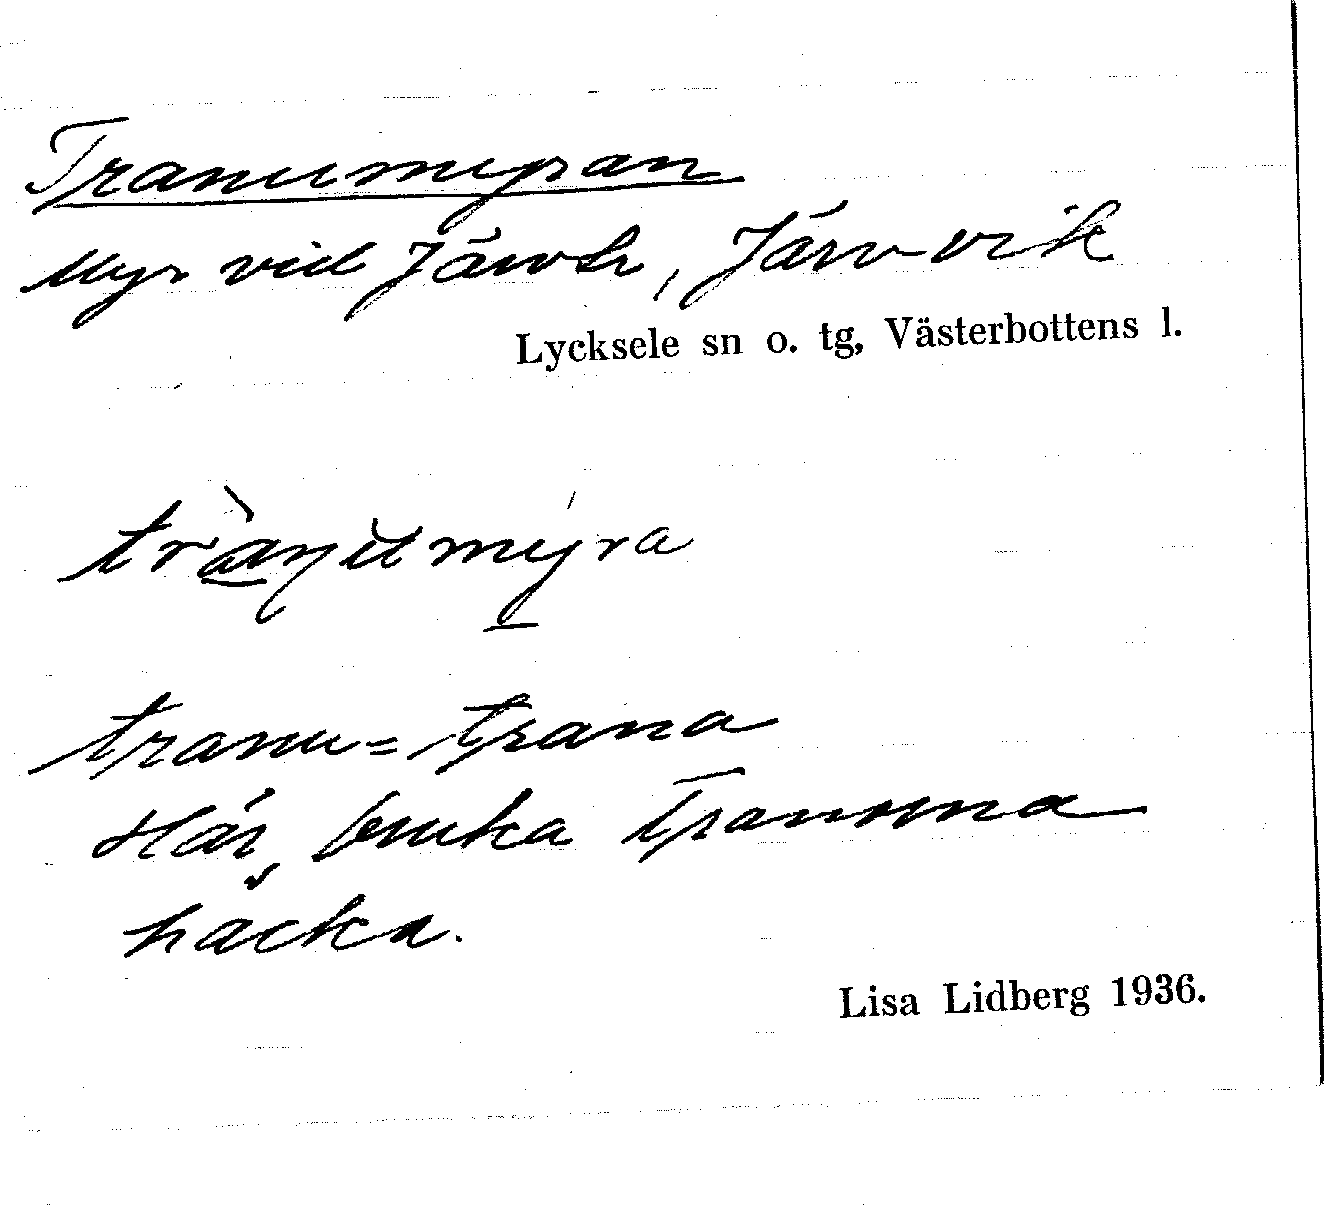 Tranumyran
Myr vid Järvtr, Järvvik
Lycksele sn o. tg, Västerbottens l.
trànŭmýra
tranu = trana
Här bruka tranorna
häcka.
Lisa Lidberg 1936.